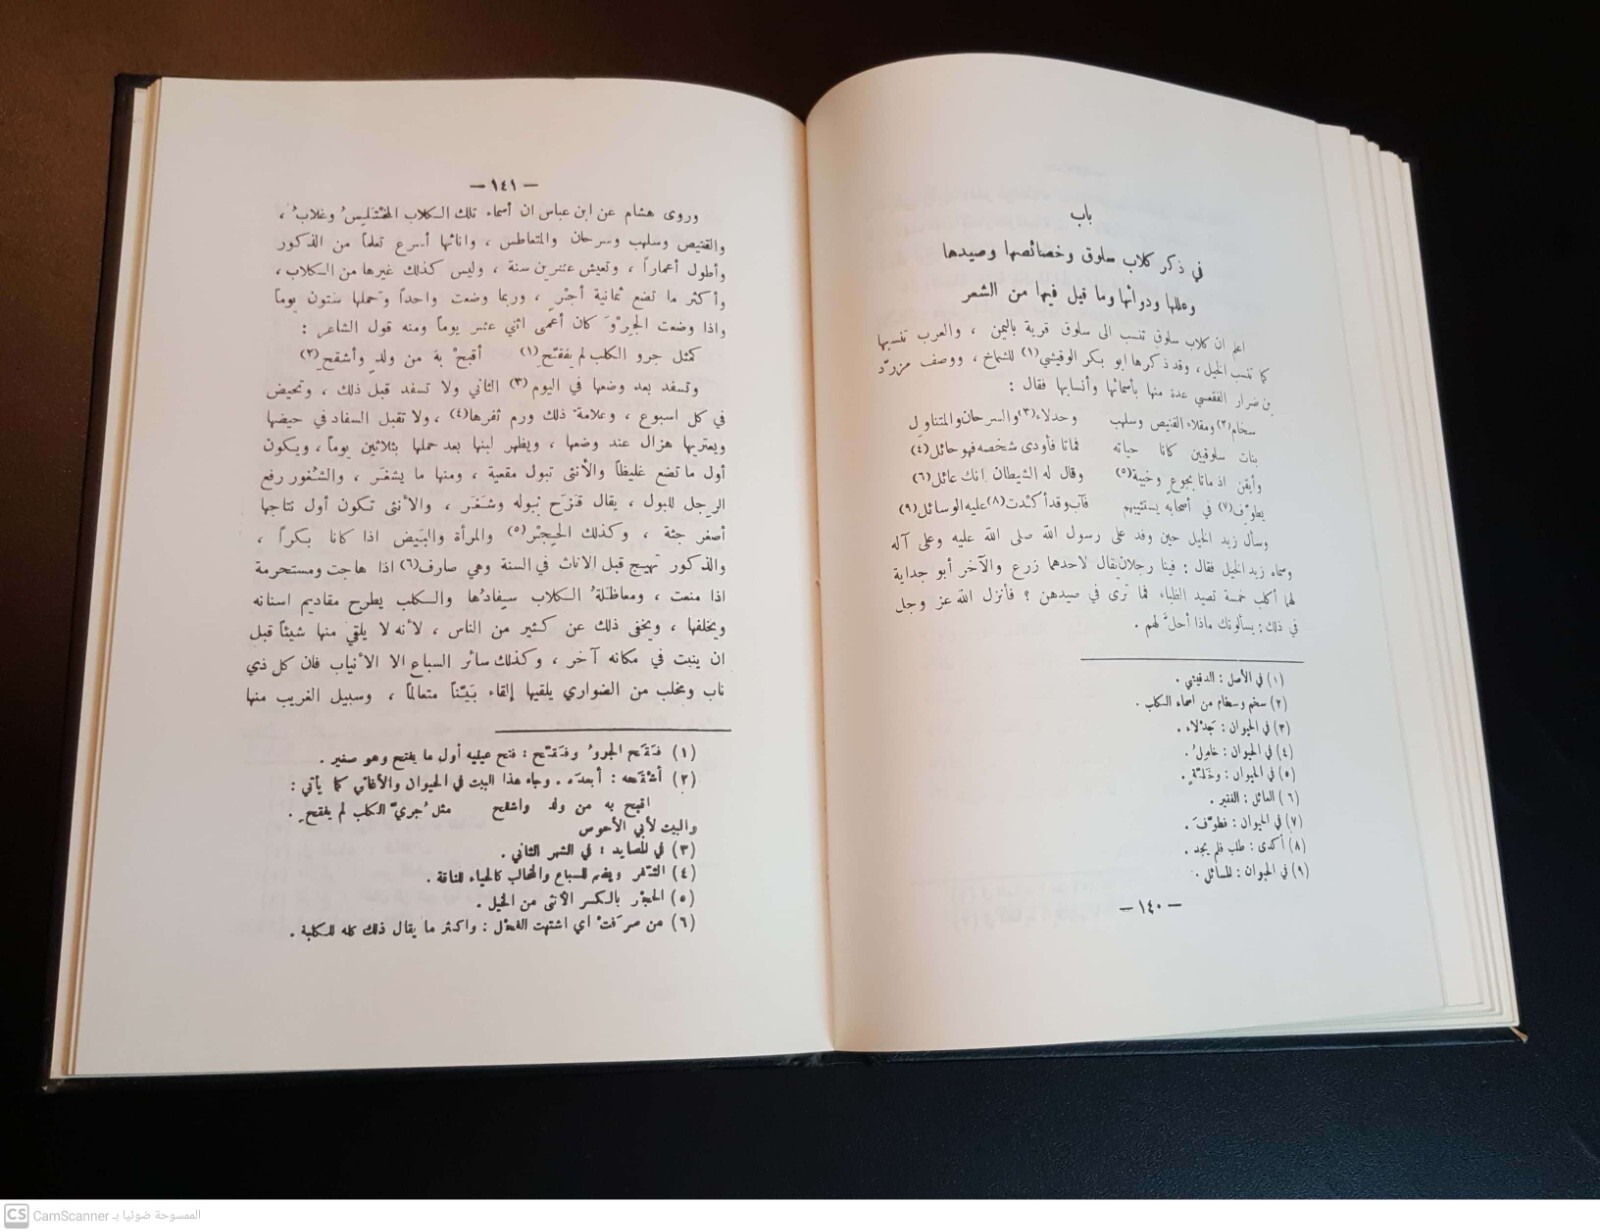 باب
في ذكر كلاب سلوق وخصائصها وصيدها
وعللها ودوائها وما قيل فيها من الشعر
اعلم ان كلاب سلوق تنسب الى سلوق قرية باليمن ، والعرب تنسبها
كما تنسب الخيل ، وقد ذكرها ابو بكر الوقيشي (١) للشماخ ، ووصف مزرّد
بن ضرار الفقعسي عدة منها بأسمائها وأنسابها فقال :
سخام(٢) ومقلاء القنيص وسلهب وجدلاء(٣) والسرحان والمتناول
بنات سلوقيين كانا حياته فماتا فأودى شخصه فهو حائل (٤)
وأيقن اذ ماتا بجوع وخيبة (٥) وقال له الشيطان إنك عائل (٦)
يطوّف (٧) في أصحابه يستثيبهم فآب وقد أكدت (٨) عليه الوسائل (٩)
وسأل زيد الخيل حين وفد على رسول الله صلى الله عليه وعلى آله
وسماه زيد الخيل فقال : فينا رجلان يقال لاحدهما زرع والآخر أبو جداية
لهما أكلب خمسة تصيد الظباء فما ترى في صيدهن ؟ فأنزل الله عز وجل
في ذلك : يسألونك ماذا أحلّ لهم .
(١) في الأصل : الدقيشي .
(٢) سخم وسخام من اسماء الكلب .
(٣) في الحيوان : جَدْلاء .
(٤) في الحيوان : خامِلُ .
(٥) في الحيوان : وخَلّةٍ .
(٦) العائل : الفقير .
(٧) في الحيوان : فطوّفَ .
(٨) أكدى : طلب فلم يجد .
(٩) في الحيوان : المسائل .
— ١٤٠ —
— ١٤١ —
وروى هشام عن ابن عباس ان أسماء تلك الكلاب المختلِسُ وغلابُ ،
والقنيص وسلهب وسرحان والمتعاطس ، واناثها أسرع تعلماً من الذكور
وأطول أعماراً ، وتعيش عشرين سنة ، وليس كذلك غيرها من الكلاب ،
وأكثر ما تضع ثمانية أجْرٍ ، وربما وضعت واحداً وتحملها ستون يوماً
واذا وضعت الجِروَ كان أعمى اثني عشر يوماً ومنه قول الشاعر :
كمثل جرو الكلب لم يفقّح (١) أقبحْ به من ولدٍ وأشقح (٢)
وتسفد بعد وضعها في اليوم (٣) الثاني ولا تسفد قبل ذلك ، وتحيض
في كل اسبوع ، وعلامة ذلك ورم ثفرها (٤) ، ولا تقبل السفاد في حيضها
ويعتريها هزال عند وضعها ، ويظهر لبنها بعد حملها بثلاثين يوماً ، ويكون
أول ما تضع غليظاً والأنثى تبول مقعية ، ومنها ما يشغَر ، والشُغور رفع
الرجل للبول ، يقال قزَح ببوله وشَغَر ، والأنثى تكون أول نتاجها
أصغر جثة ، وكذلك الحِجْر (٥) والمرأة والبَيض اذا كانا بكراً ،
والذكور تهيج قبل الاناث في السنة وهي صارف (٦) اذا هاجت ومستحرمة
اذا منعت ، ومعاظلةُ الكلاب سِفادُها والكلب يطرح مقاديم اسنانه
ويخلفها ، ويخفى ذلك عن كثير من الناس ، لأنه لا يلقي منها شيئاً قبل
ان ينبت في مكانه آخر ، وكذلك سائر السباع الا الأنياب فان كل ذي
ناب ومخلب من الضواري يلقيها إلقاء بَيّناً متعالماً ، وسبيل الغريب منها
(١) فَقَح الجروُ وفَقّح : فتح عينيه أول ما يفتح وهو صغير .
(٢) أشْقَحه : أبعدَه . وجاء هذا البيت في الحيوان والأغاني كما يأتي :
اقبح به من ولد واشقح مثل ُجريّ الكلب لم يفقح ِ .
والبيت لأبي الأحوص
(٣) في المصايد : في الشهر الثاني .
(٤) الثّفر ويضم للسباع والمخالب كالحياء للناقة .
(٥) الحِجْر بالكسر الأنثى من الخيل .
(٦) من صرَفتْ أي اشتهت الفَحْل : واكثر ما يقال ذلك كله للكلبة .
CS CamScanner الممسوحة ضوئيا بـ